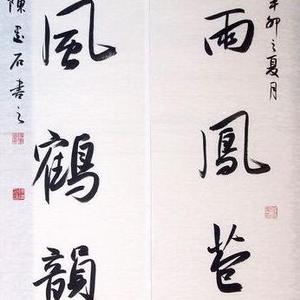 辛卯之夏月
雨鳳苞
風鶴韻
陳石書之